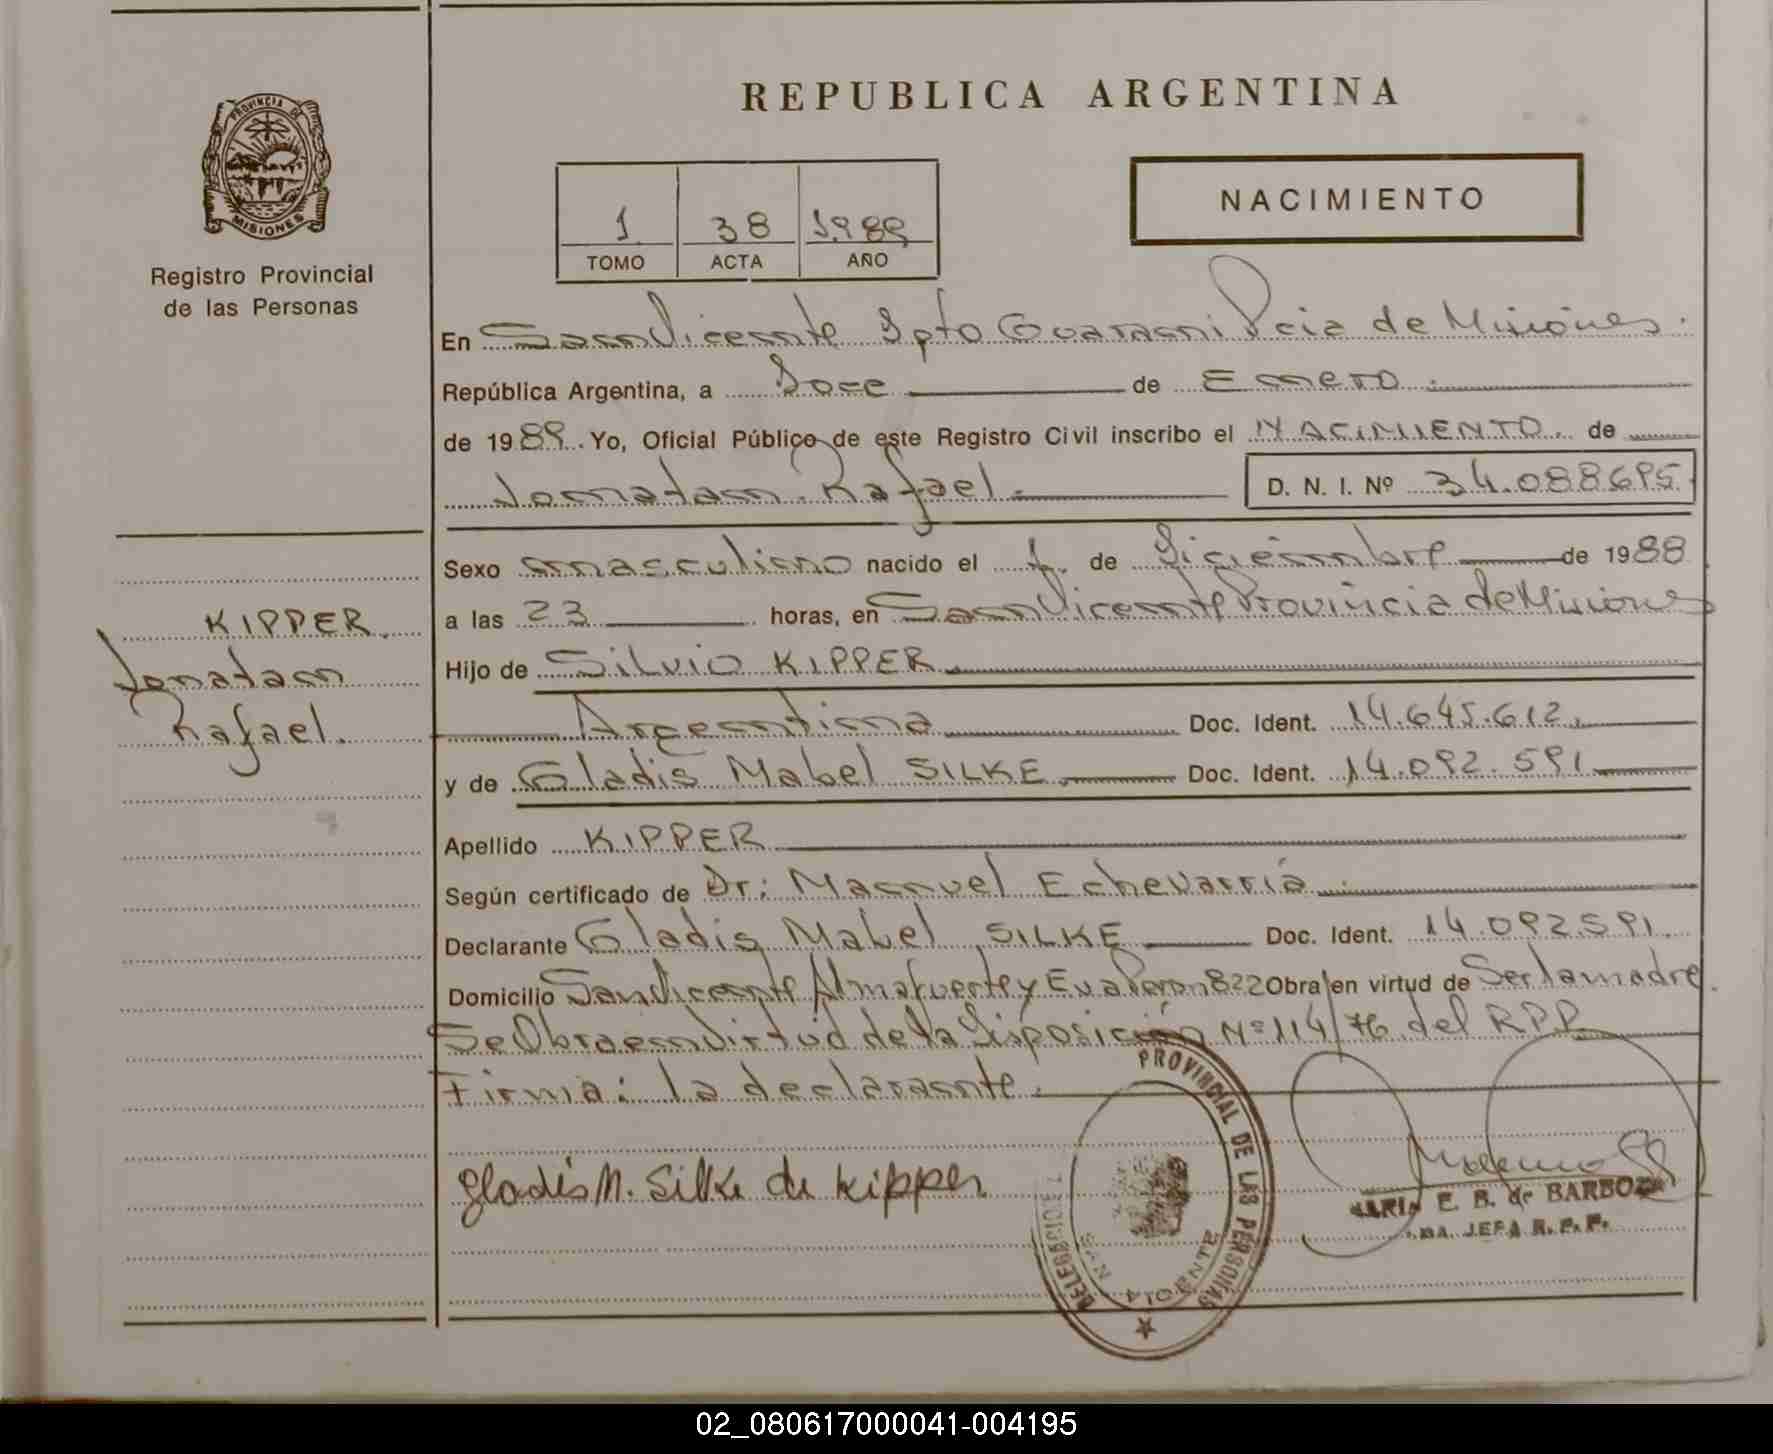 REPUBLICA ARGENTINA
PROVINCIA DE
MISIONES
Registro Provincial
de las Personas
1 38 1989
TOMO ACTA AÑO
NACIMIENTO
En San Vicente Dpto Guarani Pcia de Misiones.
República Argentina, a Doce de Enero
de 1989. Yo, Oficial Público de este Registro Civil inscribo el NACIMIENTO. de
Jonatan Rafael D. N. I. Nº 34.088695
Sexo masculino nacido el 1. de Diciembre de 1988
KIPPER.
Jonatan
Rafael.
a las 23 horas, en San Vicente Provincia de Misiones
Hijo de Silvio KIPPER
Argentina Doc. Ident. 14.645.612.
y de Gladis Mabel SILKE Doc. Ident. 14.092.591
Apellido KIPPER
Según certificado de Dr: Manuel Echevarría
Declarante Gladis Mabel SILKE Doc. Ident. 14.092.591.
Domicilio San Vicente Almafuerte y Eva Peron 822 Obra en virtud de Ser la madre.
Se Obra en Virtud de la Disposición Nº 114/76 del RPP
Firma: la declarante.
Gladis M. Silke de Kipper
PROVINCIAL DE LAS PERSONAS
DELEGACION
SAN VICENTE
MARIA E. B. de BARBOZA
JEFA R. P. P.
02_080617000041-004195